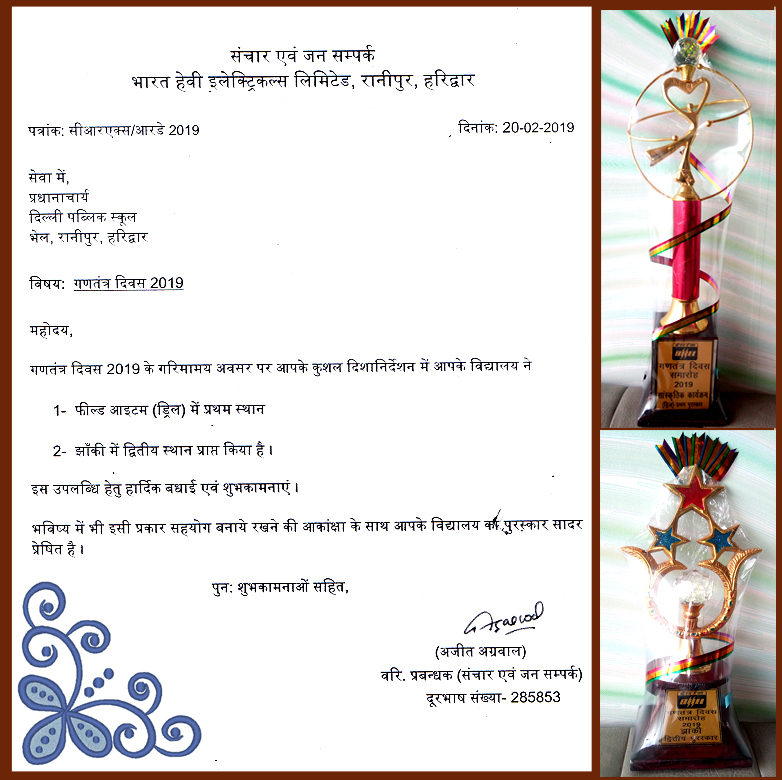 संचार एवं जन सम्पर्क
भारत हेवी इलेक्ट्रिकल्स लिमिटेड, रानीपुर, हरिद्वार
पत्रांक: सीआरएक्स/आरडे 2019
दिनांक: 20-02-2019
सेवा में,
प्रधानाचार्य
दिल्ली पब्लिक स्कूल
भेल, रानीपुर, हरिद्वार
विषय: गणतंत्र दिवस 2019
महोदय,
गणतंत्र दिवस 2019 के गरिमामय अवसर पर आपके कुशल दिशानिर्देशन में आपके विद्यालय ने
1- फील्ड आइटम (ड्रिल) में प्रथम स्थान
2- झाँकी में द्वितीय स्थान प्राप्त किया है।
इस उपलब्धि हेतु हार्दिक बधाई एवं शुभकामनाएं।
भविष्य में भी इसी प्रकार सहयोग बनाये रखने की आकांक्षा के साथ आपके विद्यालय का पुरस्कार सादर
प्रेषित है।
पुन: शुभकामनाओं सहित,
(अजीत अग्रवाल)
वरि. प्रबन्धक (संचार एवं जन सम्पर्क)
दूरभाष संख्या- 285853
गणतंत्र दिवस
समारोह
2019
सांस्कृतिक कार्यक्रम
गणतंत्र दिवस
समारोह
2019
झांकी
द्वितीय पुरस्कार